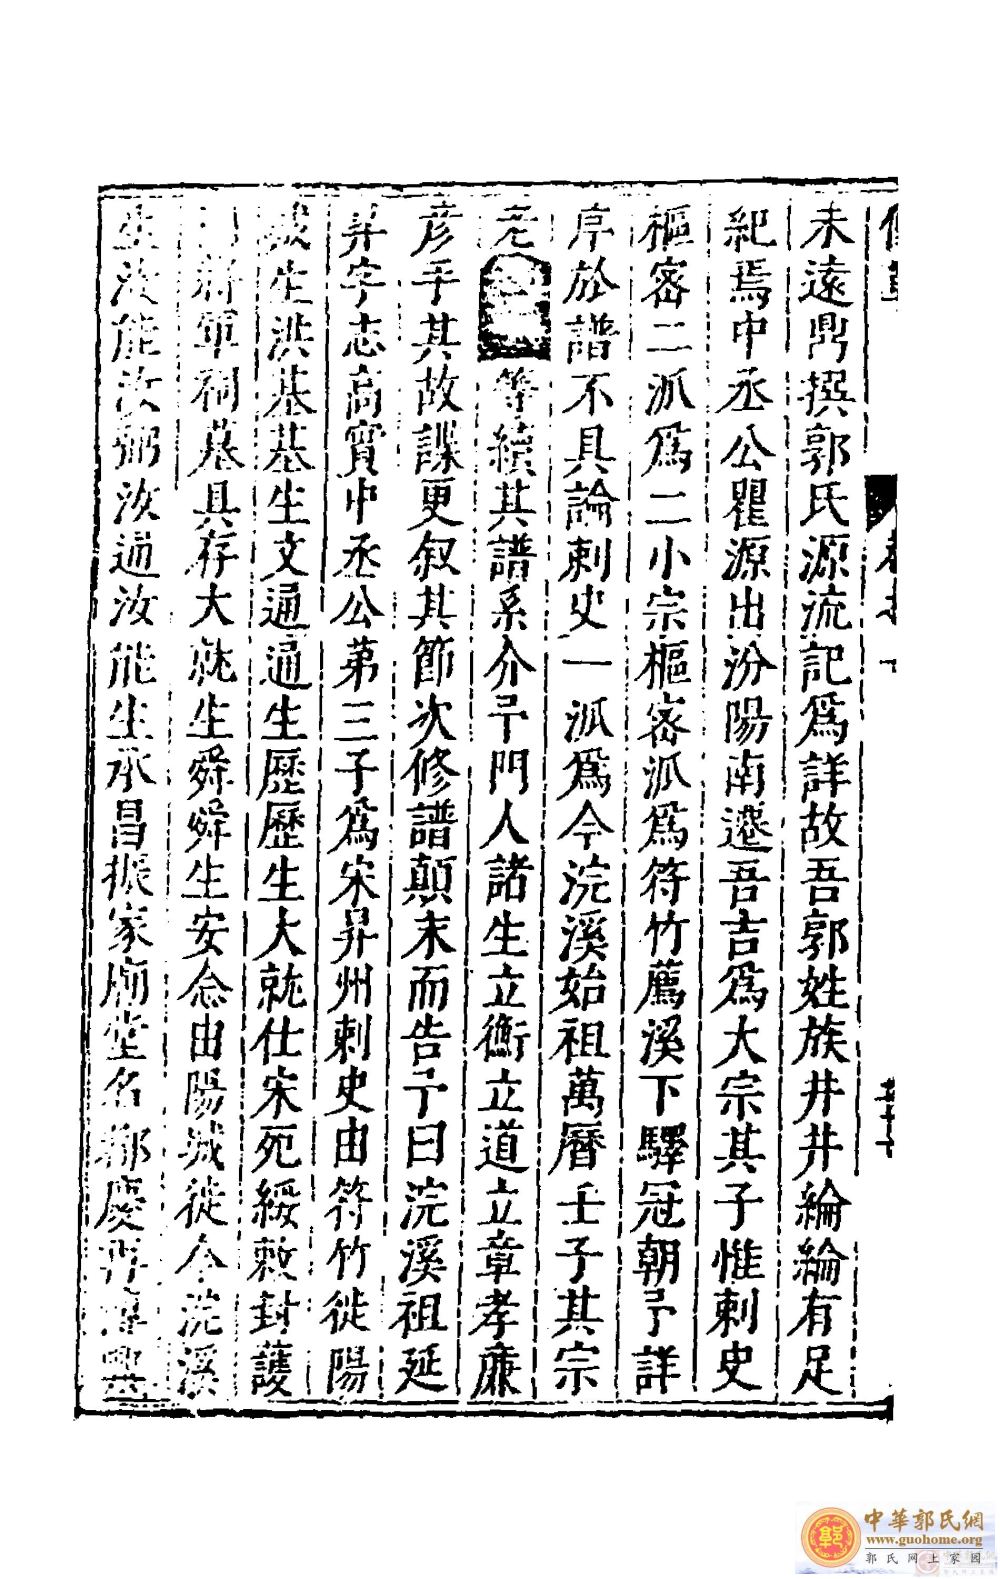 未遠鼎撰郭氏源流記爲詳故吾郭姓族井井綸綸有足
紀焉中丞公瞿源出汾陽南遷吾吉爲大宗其子惟刺史
樞密二派爲二小宗樞密派爲符竹薦溪下驛冠朝予詳
序於譜不具論刺史一派爲今浣溪始祖萬曆壬子其宗
老等續其譜系介予門人諸生立衡立道立章孝廉
彦乎其故諜更叙其節次修譜顛末而告予曰浣溪祖延
昇字志高實中丞公第三子爲宋昇州刺史由符竹徙陽
城生洪基基生文通通生歷歷生大就仕宋死綏敕封護
將軍祠墓具存大就生舜舜生安念由陽城徙今浣溪
生汝能汝弼汝通汝能生承昌振家廟堂名鄉慶
中華郭氏網
www.guohome.org
郭氏网上家园